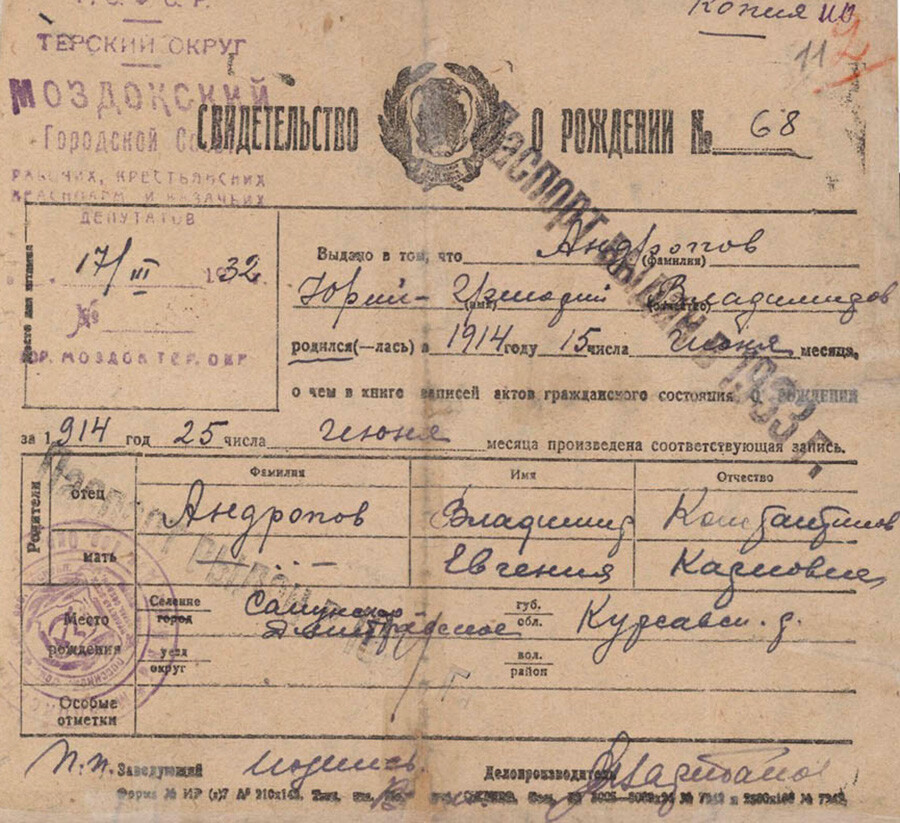 Р. С. Ф. С. Р.
Копия
ТЕРСКИЙ ОКРУГ
11 2
МОЗДОКСКИЙ
СВИДЕТЕЛЬСТВО О РОЖДЕНИИ № 68
Городской Совет
РАБОЧИХ, КРЕСТЬЯНСКИХ
КРАСНОАРМ И КАЗАЧЬИХ
ДЕПУТАТОВ
17/III 1932 г.
№
ГОР. МОЗДОК ТЕР. ОКР.
Место для штампа
Выдано в том, что Андропов
(фамилия)
Юрий-Григорий Владимиров
(имя) (отчество)
родился(—лась) в 1914 году 15 числа июня месяца,
о чем в книге записей актов гражданского состояния о рождении
за 1914 год 25 числа июня месяца произведена соответствующая запись.
Паспорт выдан в 1933 г.
Паспорт выдан
Родители
Фамилия Имя Отчество
отец Андропов Владимир Константинов
мать —〃— Евгения Карловна
Место рождения
Селение город
губ. обл. Курсавск. р.
уезд округ
вол. район
Особые отметки
п.п. Заведующий подпись Делопроизводитель